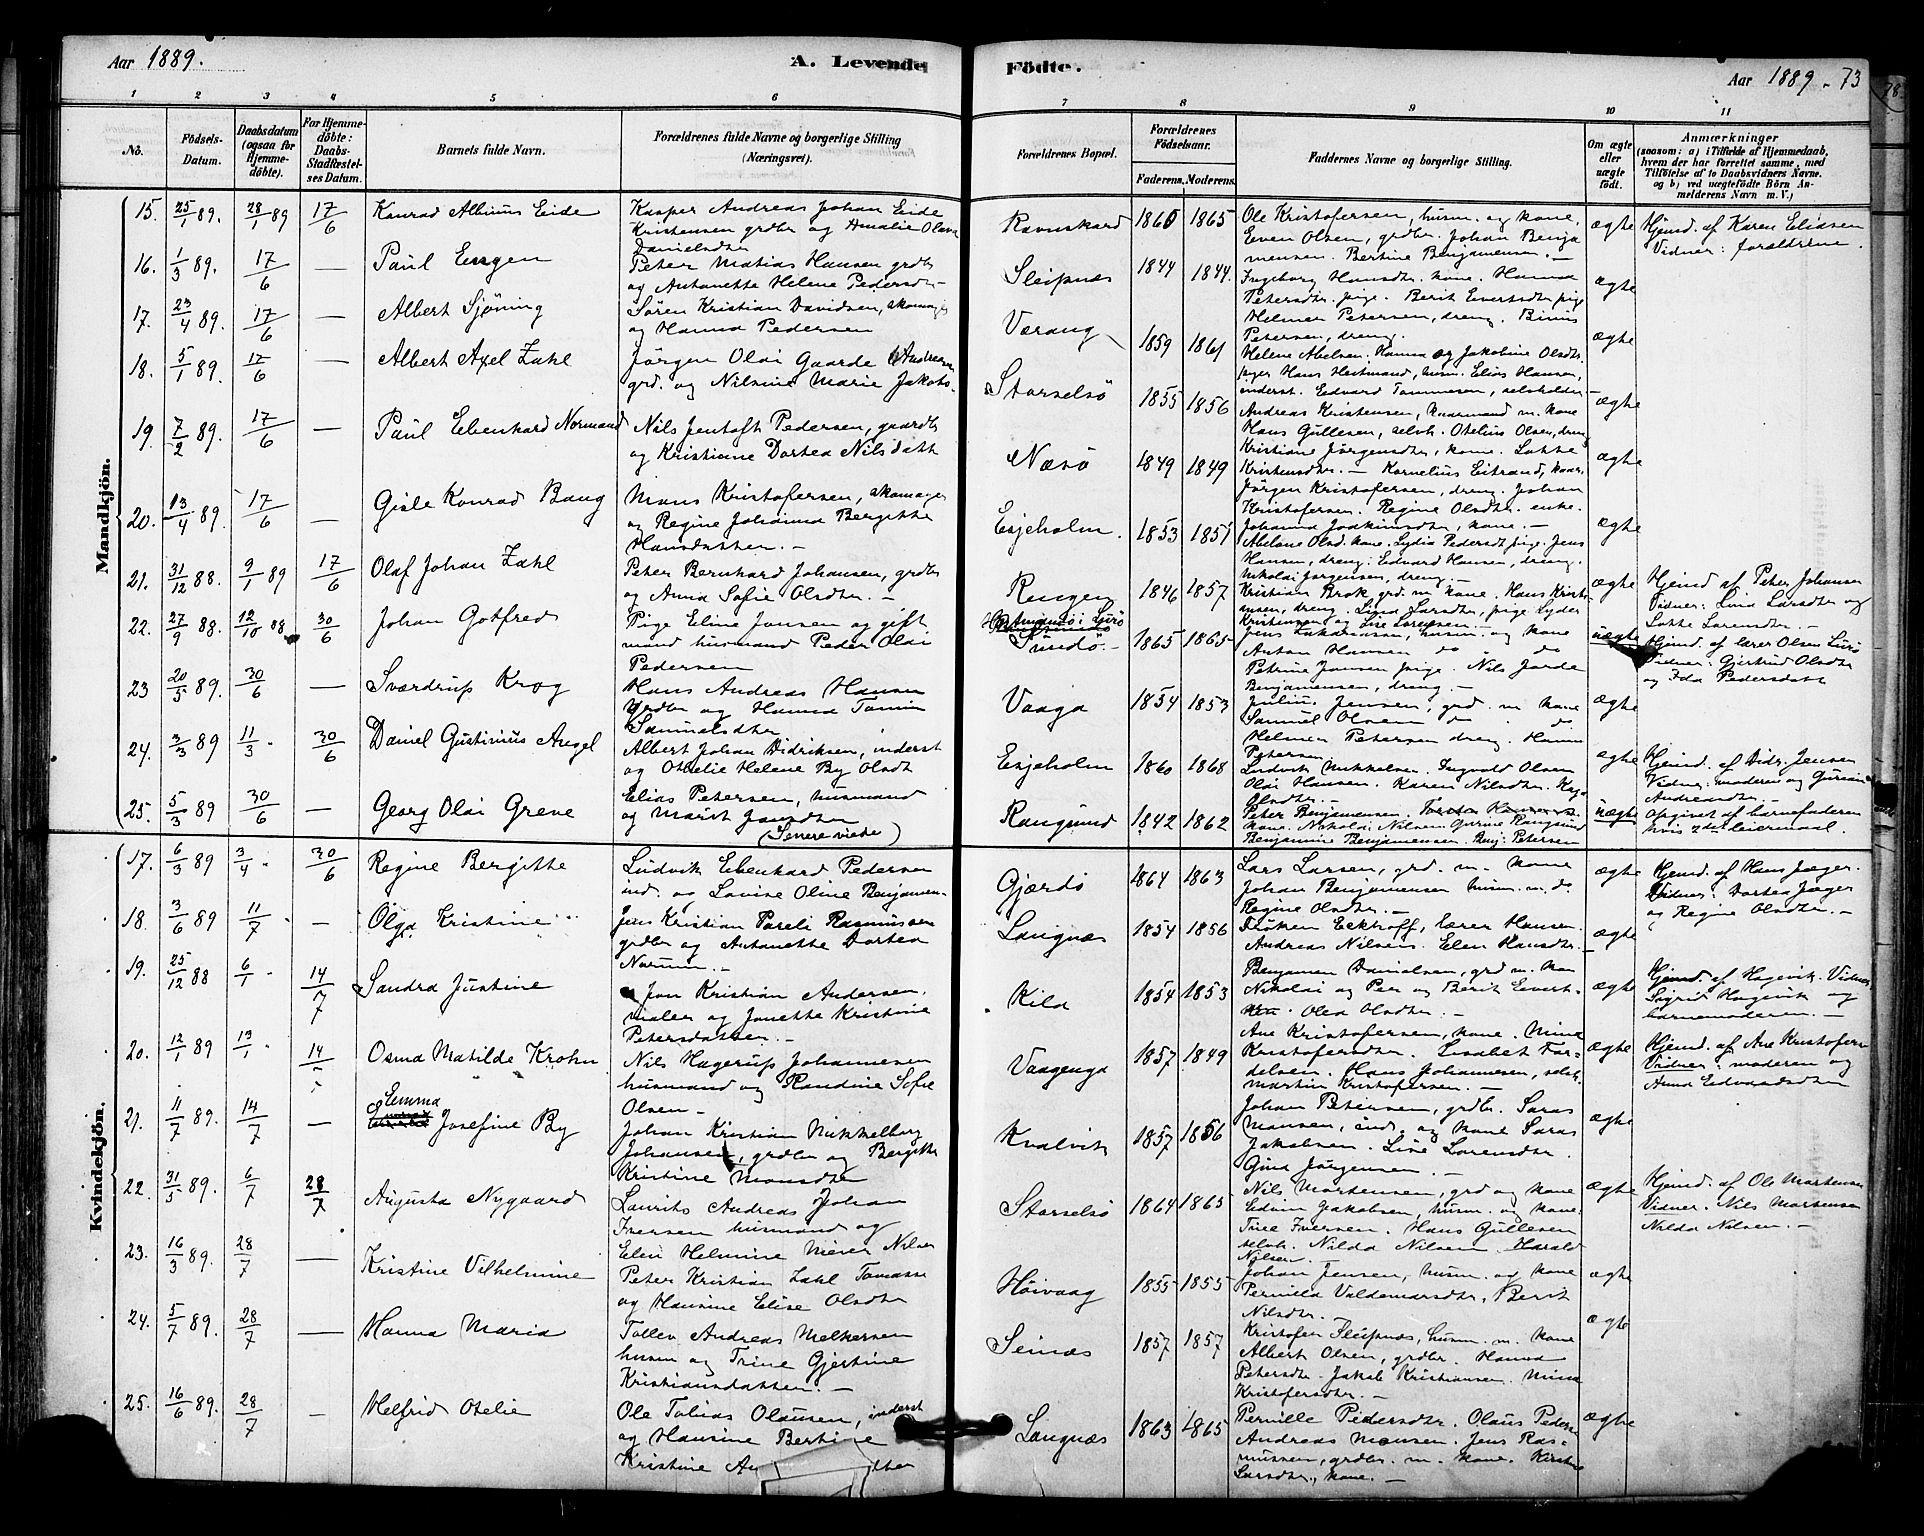 Aar 1889.
A. Levende Födte.
Aar 1889. 73
1 2 3 4 5 6 7 8 9 10 11
No.
Födsels-Datum.
Daabsdatum (ogsaa for Hjemmedöbte).
For Hjemmedöbte: Daabs-Stadfæstelses Datum.
Barnets fulde Navn.
Forældrenes fulde Navne og borgerlige Stilling (Næringsvei).
Forældrenes Bopæl.
Forældrenes Födselsaar.
Faderens. Moderens.
Faddernes Navne og borgerlige Stilling.
Om ægte eller uægte födt.
Anmærkninger
(saasom: a) i Tilfælde af Hjemmedaab, hvem der har forrettet samme, med Tilföielse af to Daabsvidners Navne. og b) ved uægtefödte Börn Anmelderens Navn m. V.)
Mandkjön.
15. 25/1 89. 28/1 89 17/6 Konrad Albinus Eide
Kasper Andreas Johan Eide
Kristensen grdbr og Amalie Olava
Danielsdtr
Ravnskard 1860 1865
Ole Kristofersen, husm. og kone.
Even Olsen, grdbr. Johan Benja
mensen. Bertine Benjamensen. —
ægte
Hjemd. af Karen Eliasen
Vidner: forældrene.
16. 1/3 89. 17/6 — Paul Engen
Peter Matias Hansen grdbr
og Antonette Helene Pedersdtr
Sleipnæs 1844 1844.
Ingeborg Hansdtr. kone. Hanna
Petersdtr. pige. Berit Evertsdtr pige
ægte
17. 23/4 89. 17/6 — Albert Sjöning
Sören Kristian Davidsen, skomager
og Hanna Pedersen
Værang 1859 1861
Helmer Petersen, dreng.
Petersen, dreng.
ægte
18. 5/1 89. 17/6 — Albert Axel Zahl
Jörgen Olai Gaarde Andreasen
grd. og Nilsine Marie Jakobs-
Storselsö 1855 1856
Helene Abelsen. Hanna og Jakobine Olsdtr.
piger Hans Hestmand, husm. Elias Hansen,
inderst. Edvard Tommesen, selveholder
ægte
19. 7/2 89. 17/6 — Paul Ebenhard Normand
Nils Jentoft Pedersen, gaardbr
og Kristiane Dortea Nilsdatt
Næsö 1849 1849
Andreas Kristensen, kaarmand m. kone
Hans Gullesen, selvh. Otelius Olsen, dreng
Kristiane Jörgensdtr, kone. Lotte
Kristensdtr. — Kornelius Eitrand, kaar.
ægte
20. 13/4 89. 17/6 — Gisle Konrad Bang
Mons Kristofersen, skomager
og Regine Johanna Bergitte
Hansdatter. —
Esjeholm. 1853 1851
Jörgen Kristofersen, dreng. Johan
Kristofersen. Regine Olsdtr. enke.
Johanna Joakimsdtr, kone. —
ægte
21. 31/12 88. 9/1 89 17/6 Olaf Johan Zahl
Peter Bernhard Johansen, grdbr
og Anna Sofie Olsdtr. —
Rengen 1846 1857
Abelone Olsd. kone. Lydia Pedersdt pige. Jens
Hansen, dreng. Edvard Hansen, dreng.
Nikolai Jörgensen, dreng. —
ægte
Hjemd af Peter Johansen
Vidner: Lina Larsdtr og
Lotte Lorensdtr. —
22. 27/9 88. 12/10 88 30/6 Johan Gotfred
Pige Eline Jensen og gift
mand husmand Peder Olai
Pedersen
Hestmandö i Lurö
Sundö. 1865 1865
Kristian Krok grd. m kone. Hans Krist-
ensen, dreng. Lina Larsdtr, pige Lyder
Kristensen og Lise Lorensen. —
uægte
Hjemd. af lærer Olsen Lurö
Vidner: Gjertrud Olsdtr
og Ida Pedersdatt
23 20/5 89. 30/6 — Sværdrup Krog
Hans Andreas Hansen
grdbr og Hanna Tomin
Samuelsdtr
Vaaga 1854 1853
Jens Zakariasen, husm. og kone
Anton Hansen do do
Petrine Jensen pige. Nils Jorde
Benjamensen, dreng. —
ægte
24. 3/3 89 11/3. 30/6 Daniel Gustinius Angel
Albert Johan Didriksen, inderst
og Othelie Helene By Olsdt
Esjeholm 1860 1868
Julius Jensen, grd. m kone
Samuel Olsen do do
Helmer Petersen dreng. Hanna
Petersen
ægte
Hjemd. af Didr. Jensen
Vidner: moderen og
Andreasdtr. —
25. 5/3 89 30/6 — Georg Olai Greve
Elias Petersen, husmand
og Marit Jonsdtr
(Senere viede)
Rangsund 1842 1862
Ludvik Mikkelsen. Ingvald Olsen
Olai Hansen. Karen Nilsdtr.
Olsdtr. —
Peter Benjamensen,
kone. Nikolai Nilsen Gurine Rangsund
Benjamine Benjamensen. Benj: Petersen
uægte
Opgivet af barnefaderen
hvis 2det leiermaal.
Kvindekjön.
17. 6/3 89 3/4. 30/6 Regine Bergitte
Ludvik Ebenhard Pedersen
ind. og Lovise Oline Benjamen-
Gjærdö 1864 1863
Lars Larsen, grd. m. kone
Johan Benjamensen husm. m. do
Regine Olsdtr. —
ægte
Hjemd. af Hans Jæger.
Vidner: Dortea Jæger
og Regine Olsdtr. —
18. 3/6 89 11/7. — Olga Kristine
Jens Kristian Pareli Rasmussen
grdbr og Antonette Dortea
Norum. —
Langnæs 1854 1856
Fröken Eckhoff, lærer Hansen.
Andreas Nilsen. Elen Hansdtr.
ægte
19. 25/12 88 6/1 14/7 Sandra Justine
Jon Kristian Andersen,
maler og Jonette Kristine
Petersdatter. —
Kila 1854 1853
Benjamen Danielsen, grd m. kon
Nikolai og Peer og Berit Evert-
Olea Olsdtr. —
ægte
Hjemd. af Hagevik. Vidner
Sigrid Hagevik og
barnemoderen. —
20. 12/1 89 13/1. 14/7 Osma Matilde Krohn
Nils Hagerup Johannesen
husmand og Randine Sofie
Olsen —
Vaagenga 1857 1849
Ane Kristofersen, kone. Mina
Kristofersdtr. Lisabet Tor-
delsen. Hans Johannesen, selvh.
Martin Kristofersen. —
ægte
Hjemd. af Ane Kristofersen
Vidner: moderen og
Anna Edvardsdtr
21. 11/7 89. 14/7 — Emma Josefine By
Johan Kristian Mikkelborg
Johansen, grdbr og Bergitte
Kristine Monsdtr
Kvalvik 1857 1856
Johan Petersen, grdbr. Saras
Monsen, ind. og kone Saras
Jakobsen. Line Lorensdtr.
Gina Jörgensen. —
ægte
22. 31/5 89. 6/7 28/7 Augusta Nygaard
Laurits Andreas Johan
Iversen husmand og
Elen Helmine Meier Nilsen
Storselsö 1864 1865
Nils Mortensen, grd og kone
Edim Jakobsen, husm. og kone.
Trine Iversen. Hans Gullesen
selvh. Nilda Nilsen. Harald
Nilsen. —
ægte
Hjemd. af Ole Mortensen
Vidner. Nils Mortensen
Nilda Nilsen. —
23. 16/3 89. 28/7 — Kristine Vilhelmine
Peter Kristian Zahl Tomass
og Hansine Elise Olsdtr
Höivaag 1855 1855
Johan Jensen, husm. og kone
Pernilla Valdemarsdtr. Berit
Nilsdtr. —
ægte
24. 5/7 89. 28/7 — Hanna Maria
Tollev Andreas Melkersen
husm og Trine Gjertine
Kristiansdatter. —
Selnæs 1857 1857
Kristofer Sleipnæs, husm. m. kone
Albert Olsen, grdbr. Hanna
Petersdtr. Jakob Kristiansen. Mina
Kristofersdtr. —
ægte
25. 16/6 89. 28/7 — Helfrid Otelie
Ole Tobias Olausen, inderst
og Hansine Bertine
Kristine
Langnæs 1863 1865
Pernille Pedersdtr. Olaus Peders
Andreas Monsen. Jens Ras-
mussen, grdbr. m. kone. Kirstine
Larsdtr, kone. —
ægte